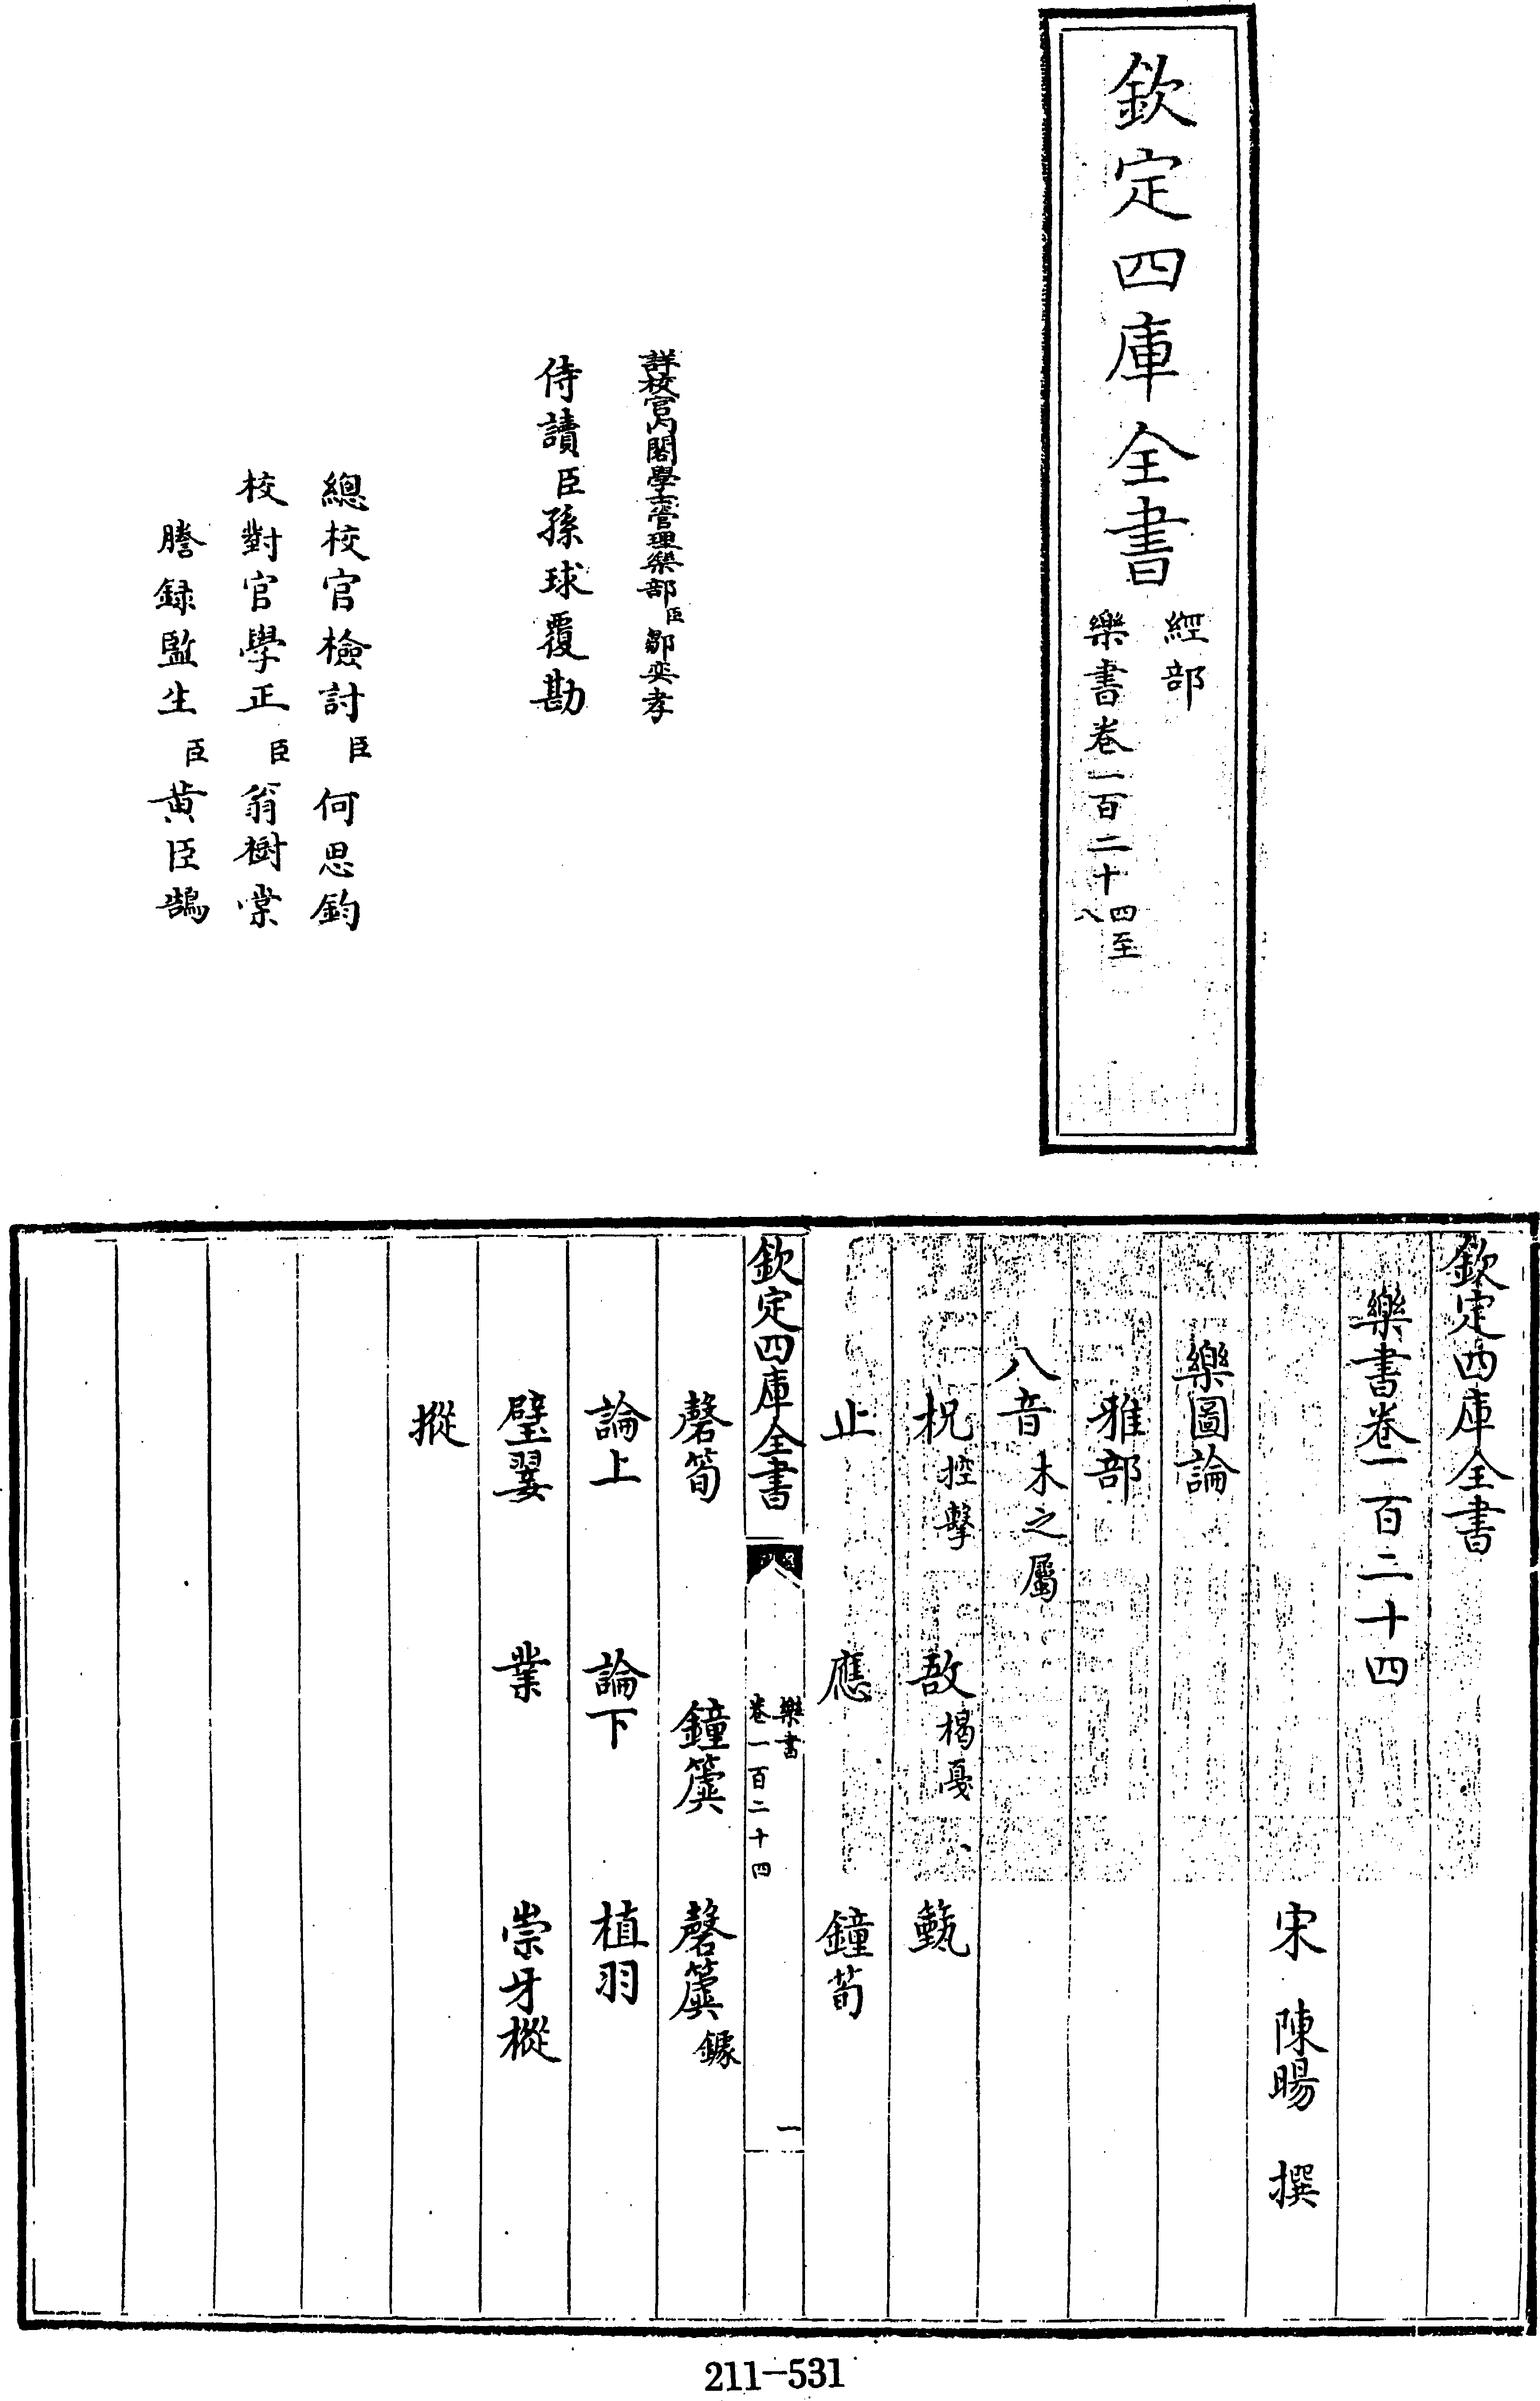 欽定四庫全書
經部
樂書卷一百二十四至八
詳校官內閣學士管理樂部臣鄒奕孝
侍讀臣孫球覆勘
總校官檢討臣何思鈞
校對官學正臣翁樹棠
謄録監生臣黃臣鵠
欽定四庫全書
樂書卷一百二十四
宋 陳暘 撰
樂圖論
雅部
八音木之屬
柷椌擊 敔楬戛 㽅
止 應 鐘荀
欽定四庫全書
樂書
卷一百二十四
一
磬筍 鐘簴 磬簴鐻
論上 論下 植羽
璧翣 業 崇牙樅
摐
211-531